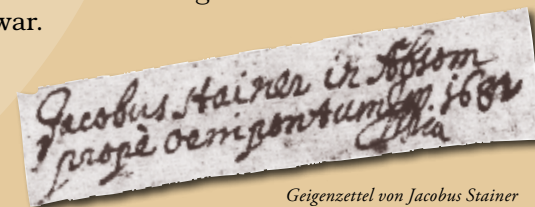 war.
Jacobus Stainer in Absom
propè oenipontum 1682
Geigenzettel von Jacobus Stainer